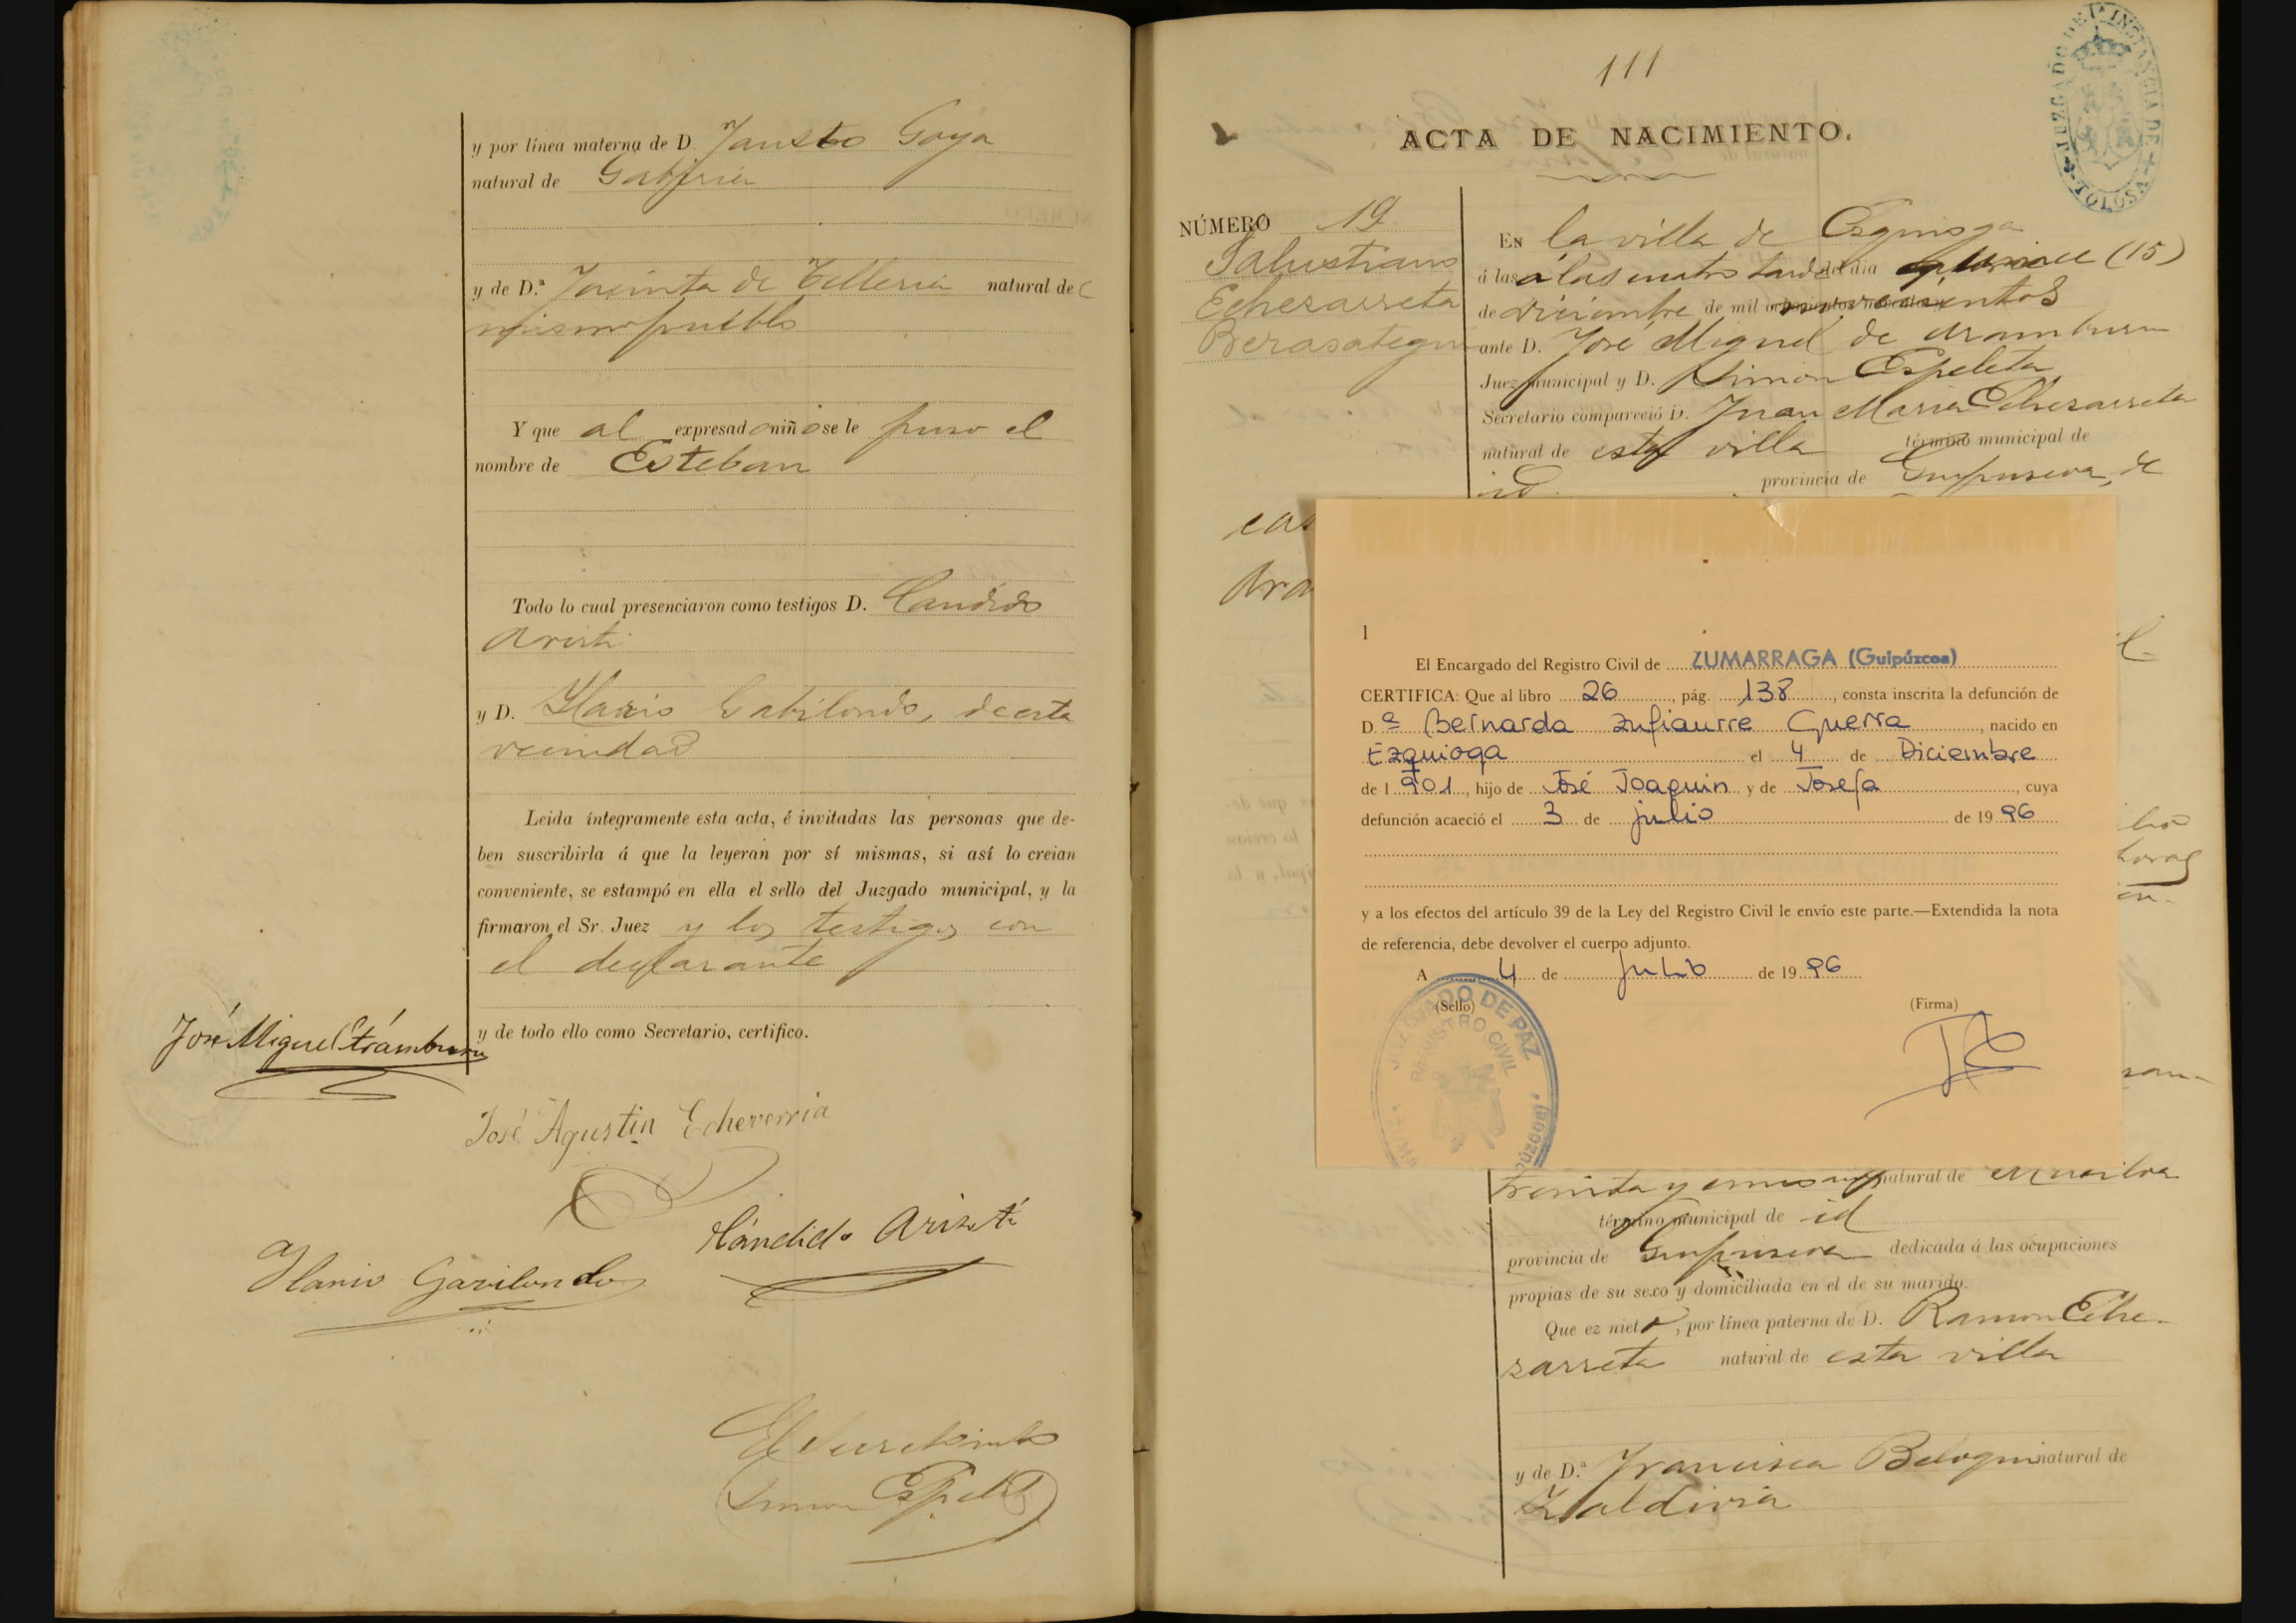 y por línea materna de D. Fausto Goya
natural de Gabiria
y de D.ª Jacinta de Telleria natural del
mismo pueblo
Y que al expresado niño se le puso el
nombre de Esteban
Todo lo cual presenciaron como testigos D. Candido
Aristi
y D. Ylario Gabilondo, de esta
vecindad
Leida íntegramente esta acta, é invitadas las personas que de-
ben suscribirla á que la leyeran por sí mismas, si así lo creian
conveniente, se estampó en ella el sello del Juzgado municipal, y la
firmaron el Sr. Juez y los testigos con
el declarante
y de todo ello como Secretario, certifico.
José Miguel Arámburu
José Agustin Echeverria
Cándido Aristi
Ylario Gavilondo
El Secretario
Simon Espeleta
111
ACTA DE NACIMIENTO.
JUZGADO DE 1ª INSTANCIA DE TOLOSA
NÚMERO 19
Salustiano
Echezarreta
Berasategui
En la villa de Ezquioga
á las á las cuatro tarde del dia quince (15)
de diciembre de mil novecientos
ante D. José Miguel de Aramburu
Juez municipal y D. Simon Espeleta
Secretario compareció D. Juan Maria Echezarreta
natural de esta villa término municipal de
id. provincia de Guipuzcoa, de
1
El Encargado del Registro Civil de ZUMARRAGA (Guipúzcoa)
CERTIFICA: Que al libro 26, pág. 138, consta inscrita la defunción de
D.ª Bernarda Zufiaurre Guerra, nacido en
Ezquioga el 4 de Diciembre
de 1.901, hijo de José Joaquin y de Josefa, cuya
defunción acaeció el 3 de julio de 1996
y a los efectos del artículo 39 de la Ley del Registro Civil le envío este parte.—Extendida la nota
de referencia, debe devolver el cuerpo adjunto.
A 4 de Julio de 1996
(Sello) (Firma)
JUZGADO DE PAZ
REGISTRO CIVIL
treinta y natural de
término municipal de id
provincia de Guipuzcoa dedicada á las ocupaciones
propias de su sexo y domiciliada en el de su marido.
Que ez nieto, por línea paterna de D. Ramon Eche-
zarreta natural de esta villa
y de D.ª Francisca Beloqui natural de
Zaldivia